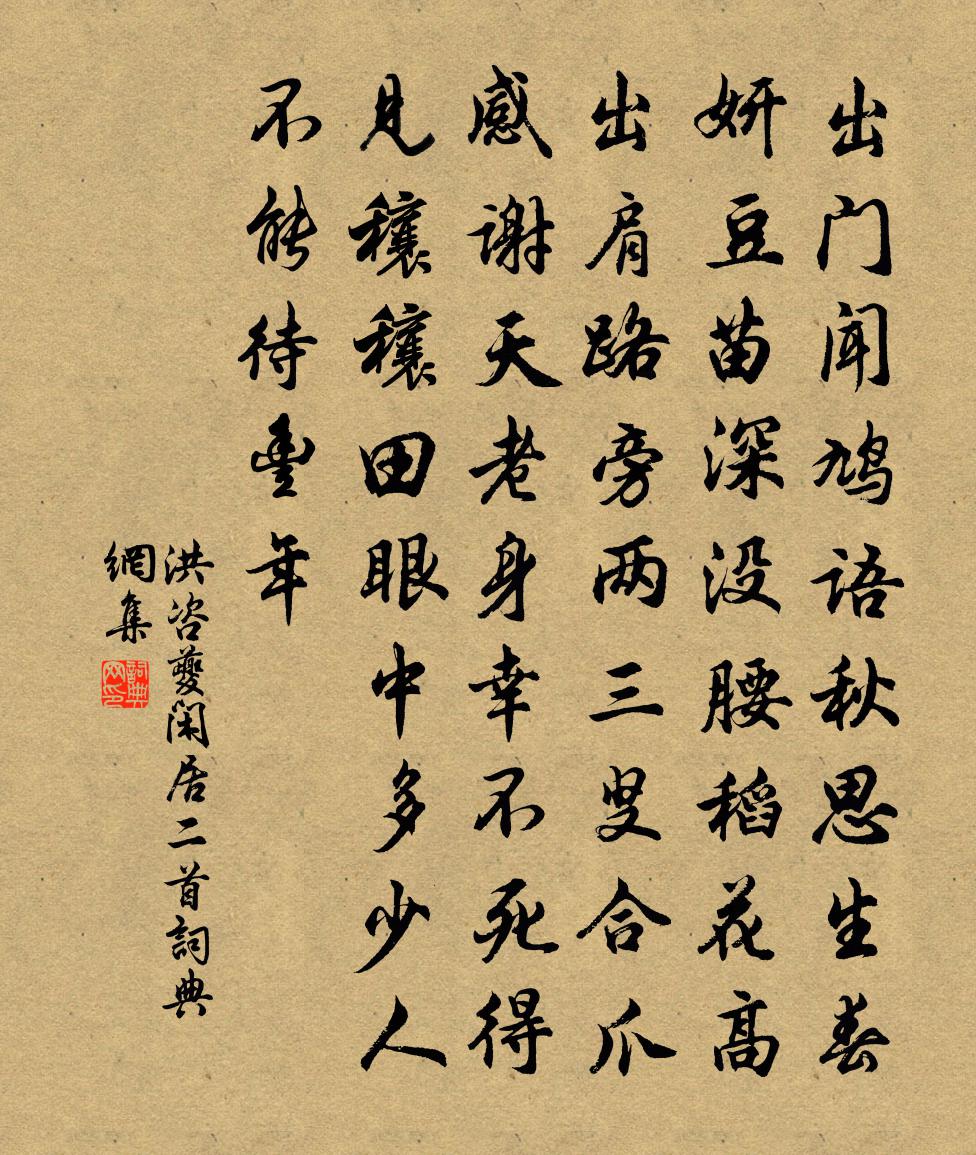 出门闻鸠语秋思生春
妍豆苗深没腰稻花高
出肩路旁两三叟合爪
感谢天老身幸不死得
见穰穰田眼中多少人
不能待豊年
洪咨夔闲居二首詞典
網集
詞典網印